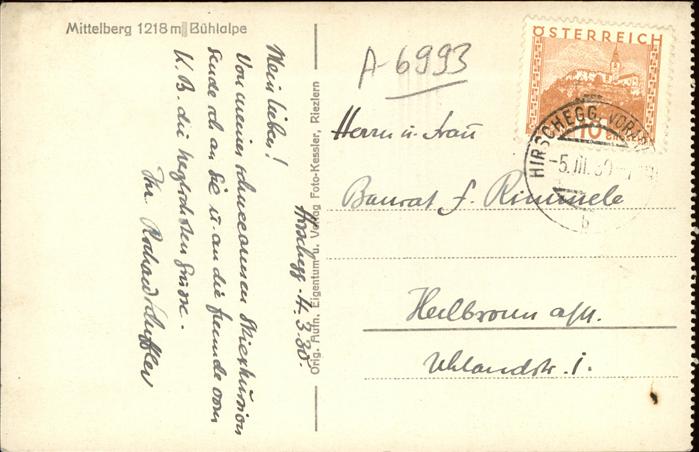 Mittelberg 1218 m Bühlalpe
Hirschegg. 4.3.30.
Mein Lieber!
Von meiner schneearmen Skiexkursion
sende ich an Sie u. an die Freunde vom
K.B. die herzlichsten Grüsse.
Ihr Richard
Orig. Aufn. Eigentum u. Verlag Foto-Kessler, Riezlern
A-6993
ÖSTERREICH
10
HIRSCHEGG,
-5.III.30
b
Herrn u. Frau
Baurat F. Rimmele
Heilbronn a/N.
Uhlandstr. 1.